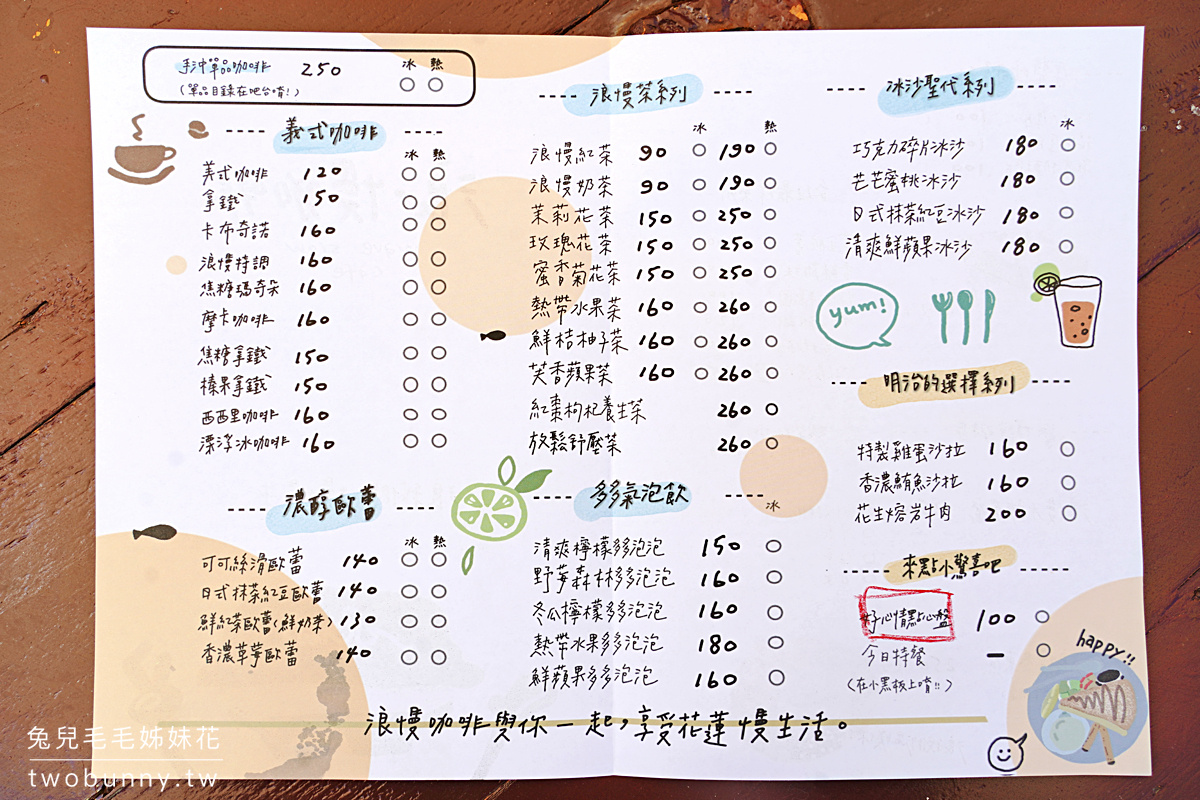 手沖單品咖啡 250 冰 熱
(單品目錄在吧台唷!)
義式咖啡
冰 熱
美式咖啡 120
拿鐵 150
卡布奇諾 160
浪慢特調 160
焦糖瑪奇朵 160
摩卡咖啡 160
焦糖拿鐵 150
榛果拿鐵 150
西西里咖啡 160
漂浮冰咖啡 160
濃醇歐蕾
冰 熱
可可絲滑歐蕾 140
日式抹茶紅豆歐蕾 140
鮮紅茶歐蕾(鮮奶茶) 130
香濃草莓歐蕾 140
浪慢茶系列
冰 熱
浪慢紅茶 90 190
浪慢奶茶 90 190
茉莉花茶 150 250
玫瑰花茶 150 250
蜜香菊花茶 150 250
熱帶水果茶 160 260
鮮桔柚子茶 160 260
芙香蘋果茶 160 260
紅棗枸杞養生茶 260
放鬆舒壓茶 260
多多氣泡飲
冰
清爽檸檬多泡泡 150
野莓森林多泡泡 160
冬瓜檸檬多多泡泡 160
熱帶水果多多泡泡 180
鮮蘋果多多泡泡 160
冰沙聖代系列
冰
巧克力碎片冰沙 180
芒芒蜜桃冰沙 180
日式抹茶紅豆冰沙 180
清爽鮮蘋果冰沙 180
yum!
明治的選擇系列
特製雞蛋沙拉 160
香濃鮪魚沙拉 160
花生熔岩牛肉 200
來點小驚喜吧
好心情點心盤 100
今日特餐 -
(在小黑板上唷!!)
happy!!
浪慢咖啡與你一起,享受花蓮慢生活。
兔兒毛毛姊妹花
twobunny.tw